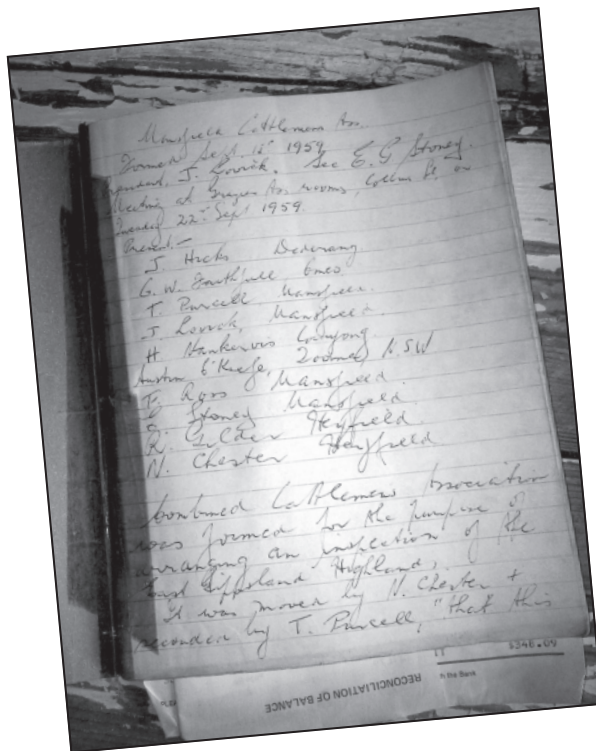 Mansfield Cattlemens Ass.
Formed Sept. 12th 1959
President, J. Lovick. Sec E. G Stoney.
Meeting at Graziers Ass rooms, Collins St. on
Tuesday 22nd Sept 1959.
Present:-
J Hicks Dederang
G. W. Faithfull Omeo
T. Purcell Mansfield.
J Lovick, Mansfield.
H. Hankervis
Austin O'Keefe, N.SW
Ross Mansfield.
Stoney Mansfield.
R. Gilder Heyfield.
N. Chester Heyfield
Combined Cattlemens Association
was formed for the purpose of
arranging an inspection of the
East Gippsland Highland,
it was moved by N. Chester +
seconded by T. Purcell, "that this
RECONCILIATION OF BALANCE
h the Bank